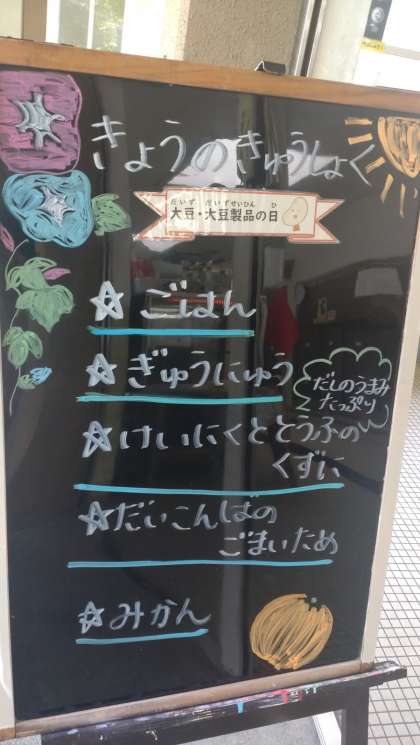 きょうのきゅうしょく
だいず だいずせいひん ひ
大豆・大豆製品の日
☆ごはん
☆ぎゅうにゅう
だしのうまみ
たっぷり
☆けいにくととうふの
くずに
☆だいこんばの
ごまいため
☆みかん